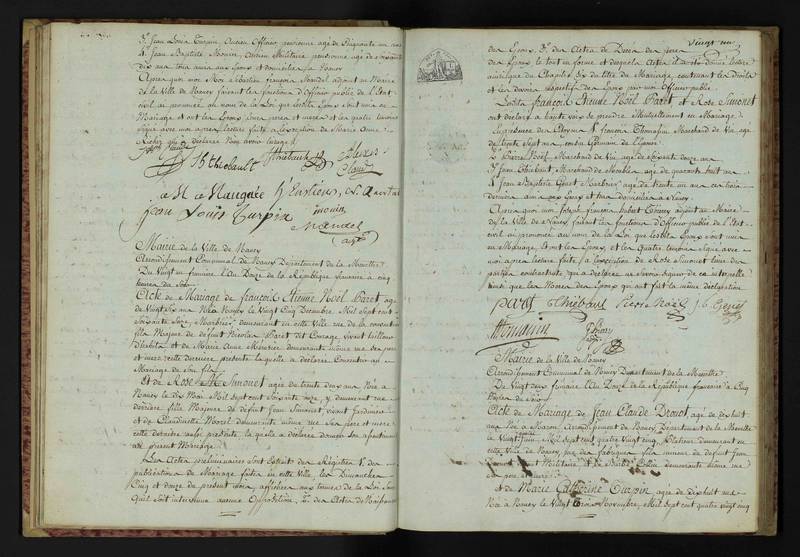 3.° Jean Louis Turpin, Ancien Officier pensionné agé de
4.° Jean Baptiste Mouin, Ancien Militaire pensionné age de soixante
dix ans tous amis aux Epoux et domiciliés a Nancy
Apres quoi nous Noé Sebastien François Mandel adjoint au Maire
de la Ville de Nancy faisant les fonctions d'Officier public de l'Etat
civil ai prononcé au nom de la Loi que lesdits Epoux sont unis en
Mariage et ont les Epoux leurs peres et meres et les quatre temoins
signé avec moi apres lecture faite a l'exception de Marie Anne
declaré
Thiebault
Jean Louis Turpin
Mouin
Mandel
adj
Mairie de la Ville de Nancy
Arrondissement Communal de Nancy Département de la Meurthe
Du Vingt un frimaire l'An Douze de la République francaise a cinq
heures du soir
Acte de Mariage de françois Etienne Noël Paret agé
de Vingt six ans Né a Nancy le Vingt Cinq Decembre Mil Sept cent
soixante Seize, Marbrier, demeurant en cette Ville rue de la
fils Majeur de defunt Nicolas Paret dit Courage, vivant tailleur
d'habits et de Marie Anne demeurante même rue ses pere
et mere cette derniere presente laquelle a déclaré Consentir au
Mariage de son fils
Et de Rose Simonet agée de trente deux ans Née a
Nancy le dix Mai Mil sept cent soixante onze, y demeurant rue
derriere fille Majeure de defunt Jean Simonet, vivant Jardinier
et de Claudinette Morel demeurante même rue ses pere et mere
cette derniere aussi presente laquelle a declaré donner son
au present Mariage
Les Actes preliminaires sont Extrait des Registres 1.° des
publications de Mariage faites en cette Ville les Dimanches
Cinq et douze du present mois, affichées aux termes de la Loi, sans
quil soit intervenue aucune Opposition, 2.° des Actes de Naissances
Vingt un
des Epoux, 3.° des Actes de Deces des peres
des Epoux le tout en forme et desquels Actes il a été donné lecture
ainsi que du Chapitre Six du titre du Mariage contenant les Droits
et les devoirs respectifs des Epoux par moi Officier public
Lesdits françois Etienne Noël Paret et Rose Simonet
ont déclaré a haute voix se prendre Mutuellement en Mariage
En presence des Citoyens 1.° françois Thomassin Marchand de Vin agé
de trente Sept ans, cousin Germain de l'Epouse
2.° Pierre Noël, Marchand de Vin agé de soixante douze ans
3.° Jean Thiebaut, Marchand de Meubles agé de quarante huit ans
4.° Jean Baptiste Marbrier agé de trente un ans ces trois
derniers amis des Epoux et tous domiciliés a Nancy
Apres quoi moi Joseph françois hubert adjoint au Maire
de la Ville de Nancy faisant les fonctions d'Officier public de l'Etat
civil ai prononcé au nom de la Loi que lesdits Epoux sont unis
en Mariage, et ont les Epoux, et les Quatre temoins signé avec
moi apres lecture faite, a l'exception de Rose Simonet l'une des
parties contractantes qui a déclaré ne savoir signer de ce interpellée
ainsi que les Meres des Epoux qui ont fait la même declaration
paret Thiebaut Pierre Noël J. b.
Mairie de la Ville de Nancy
Arrondissement Communal de Nancy Departement de la Meurthe
De Vingt deux frimaire l'An Douze de la République francaise a Cinq
heures du soir
Acte de Mariage de Jean Claude Drouot, agé de dixhuit
ans Né a Arrondissement de Nancy Departement de la Meurthe
le Vingt Juin Mil sept cent quatre vingt cinq, Platineur demeurant en
cette Ville de Nancy rue des fabriques fils mineur de defunt Jean
Militaire et de Barbe demeurante même rue
ses pere et mere
et de Marie Catherine Turpin, agée de dixhuit ans
Née a Nancy le Vingt trois Novembre, Mil sept cent quatre vingt cinq